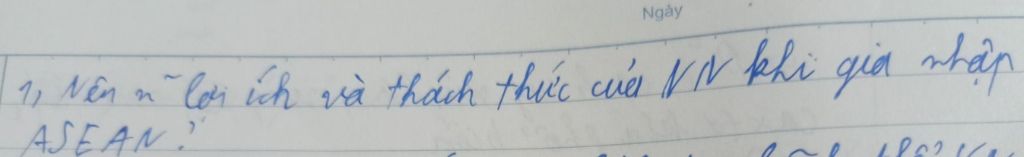 Ngày
1, Nên n~ lợi ích và thách thức của VN khi gia nhập
ASEAN?